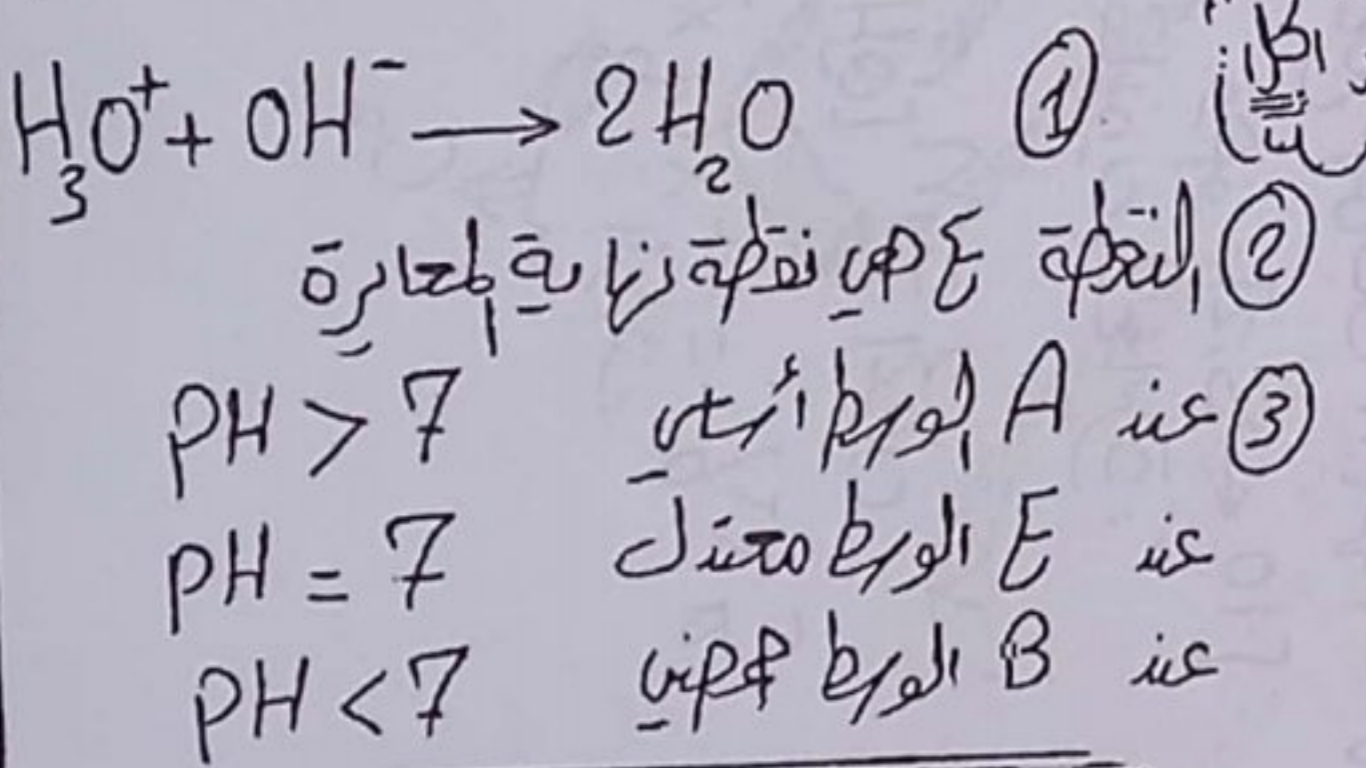 الحل:
① H₃O⁺ + OH⁻ → 2H₂O
② النقطة E هي نقطة نهاية المعايرة
③ عند A الوسط أساسي pH > 7
عند E الوسط معتدل pH = 7
عند B الوسط حمضي pH < 7